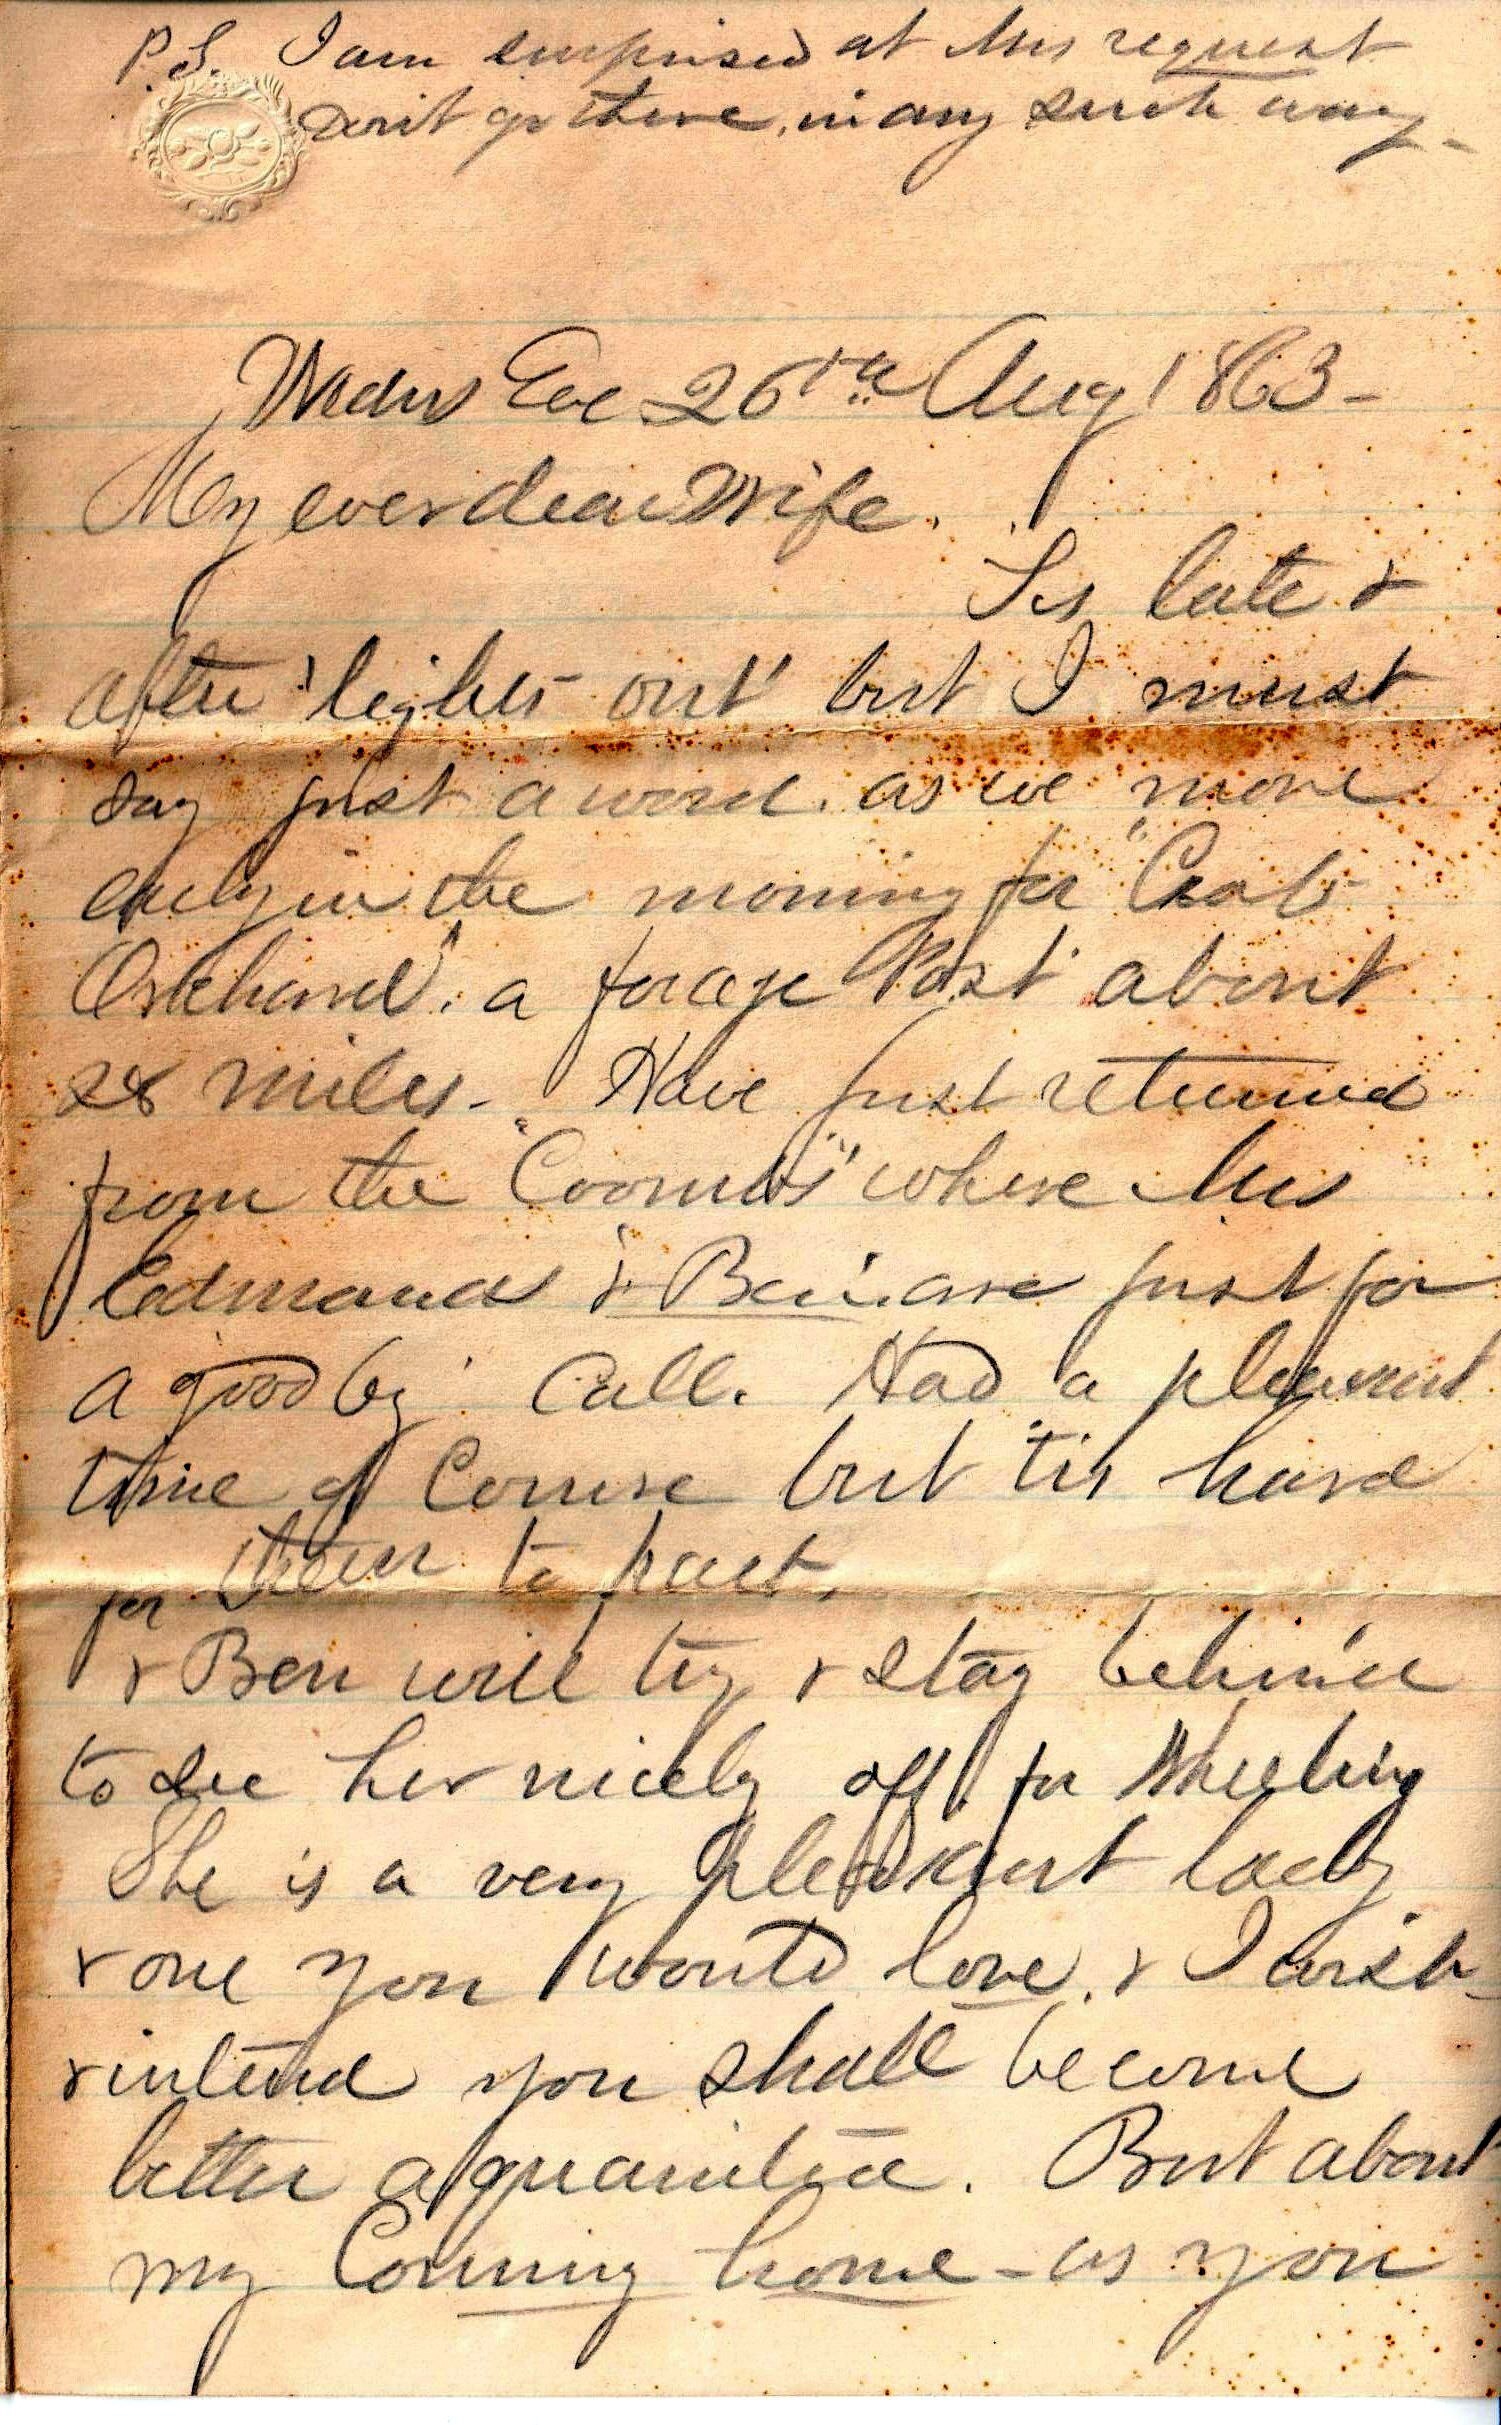 P.S. I am surprised at Mrs request
Don't go there, in any such way -
Wedns Eve 26th Aug 1863 -
My ever dear Wife.
Tis late &
after 'lights out' but I must
say just a word. as we move
early in the morning for "Crab
Orchard". a forage Post about
28 miles - Have just returned
from the "Coombs" where Mrs
Edmands & Ben. are just for
a good by call. Had a pleasant
time of course but 'tis hard
for them to part.
& Ben will try & stay behind
to see her nicely off for Wheeling
She is a very pleasant lady
& one you would love. & I wish -
& intend you shall become
better aquainted. But about
my Comming home - as you